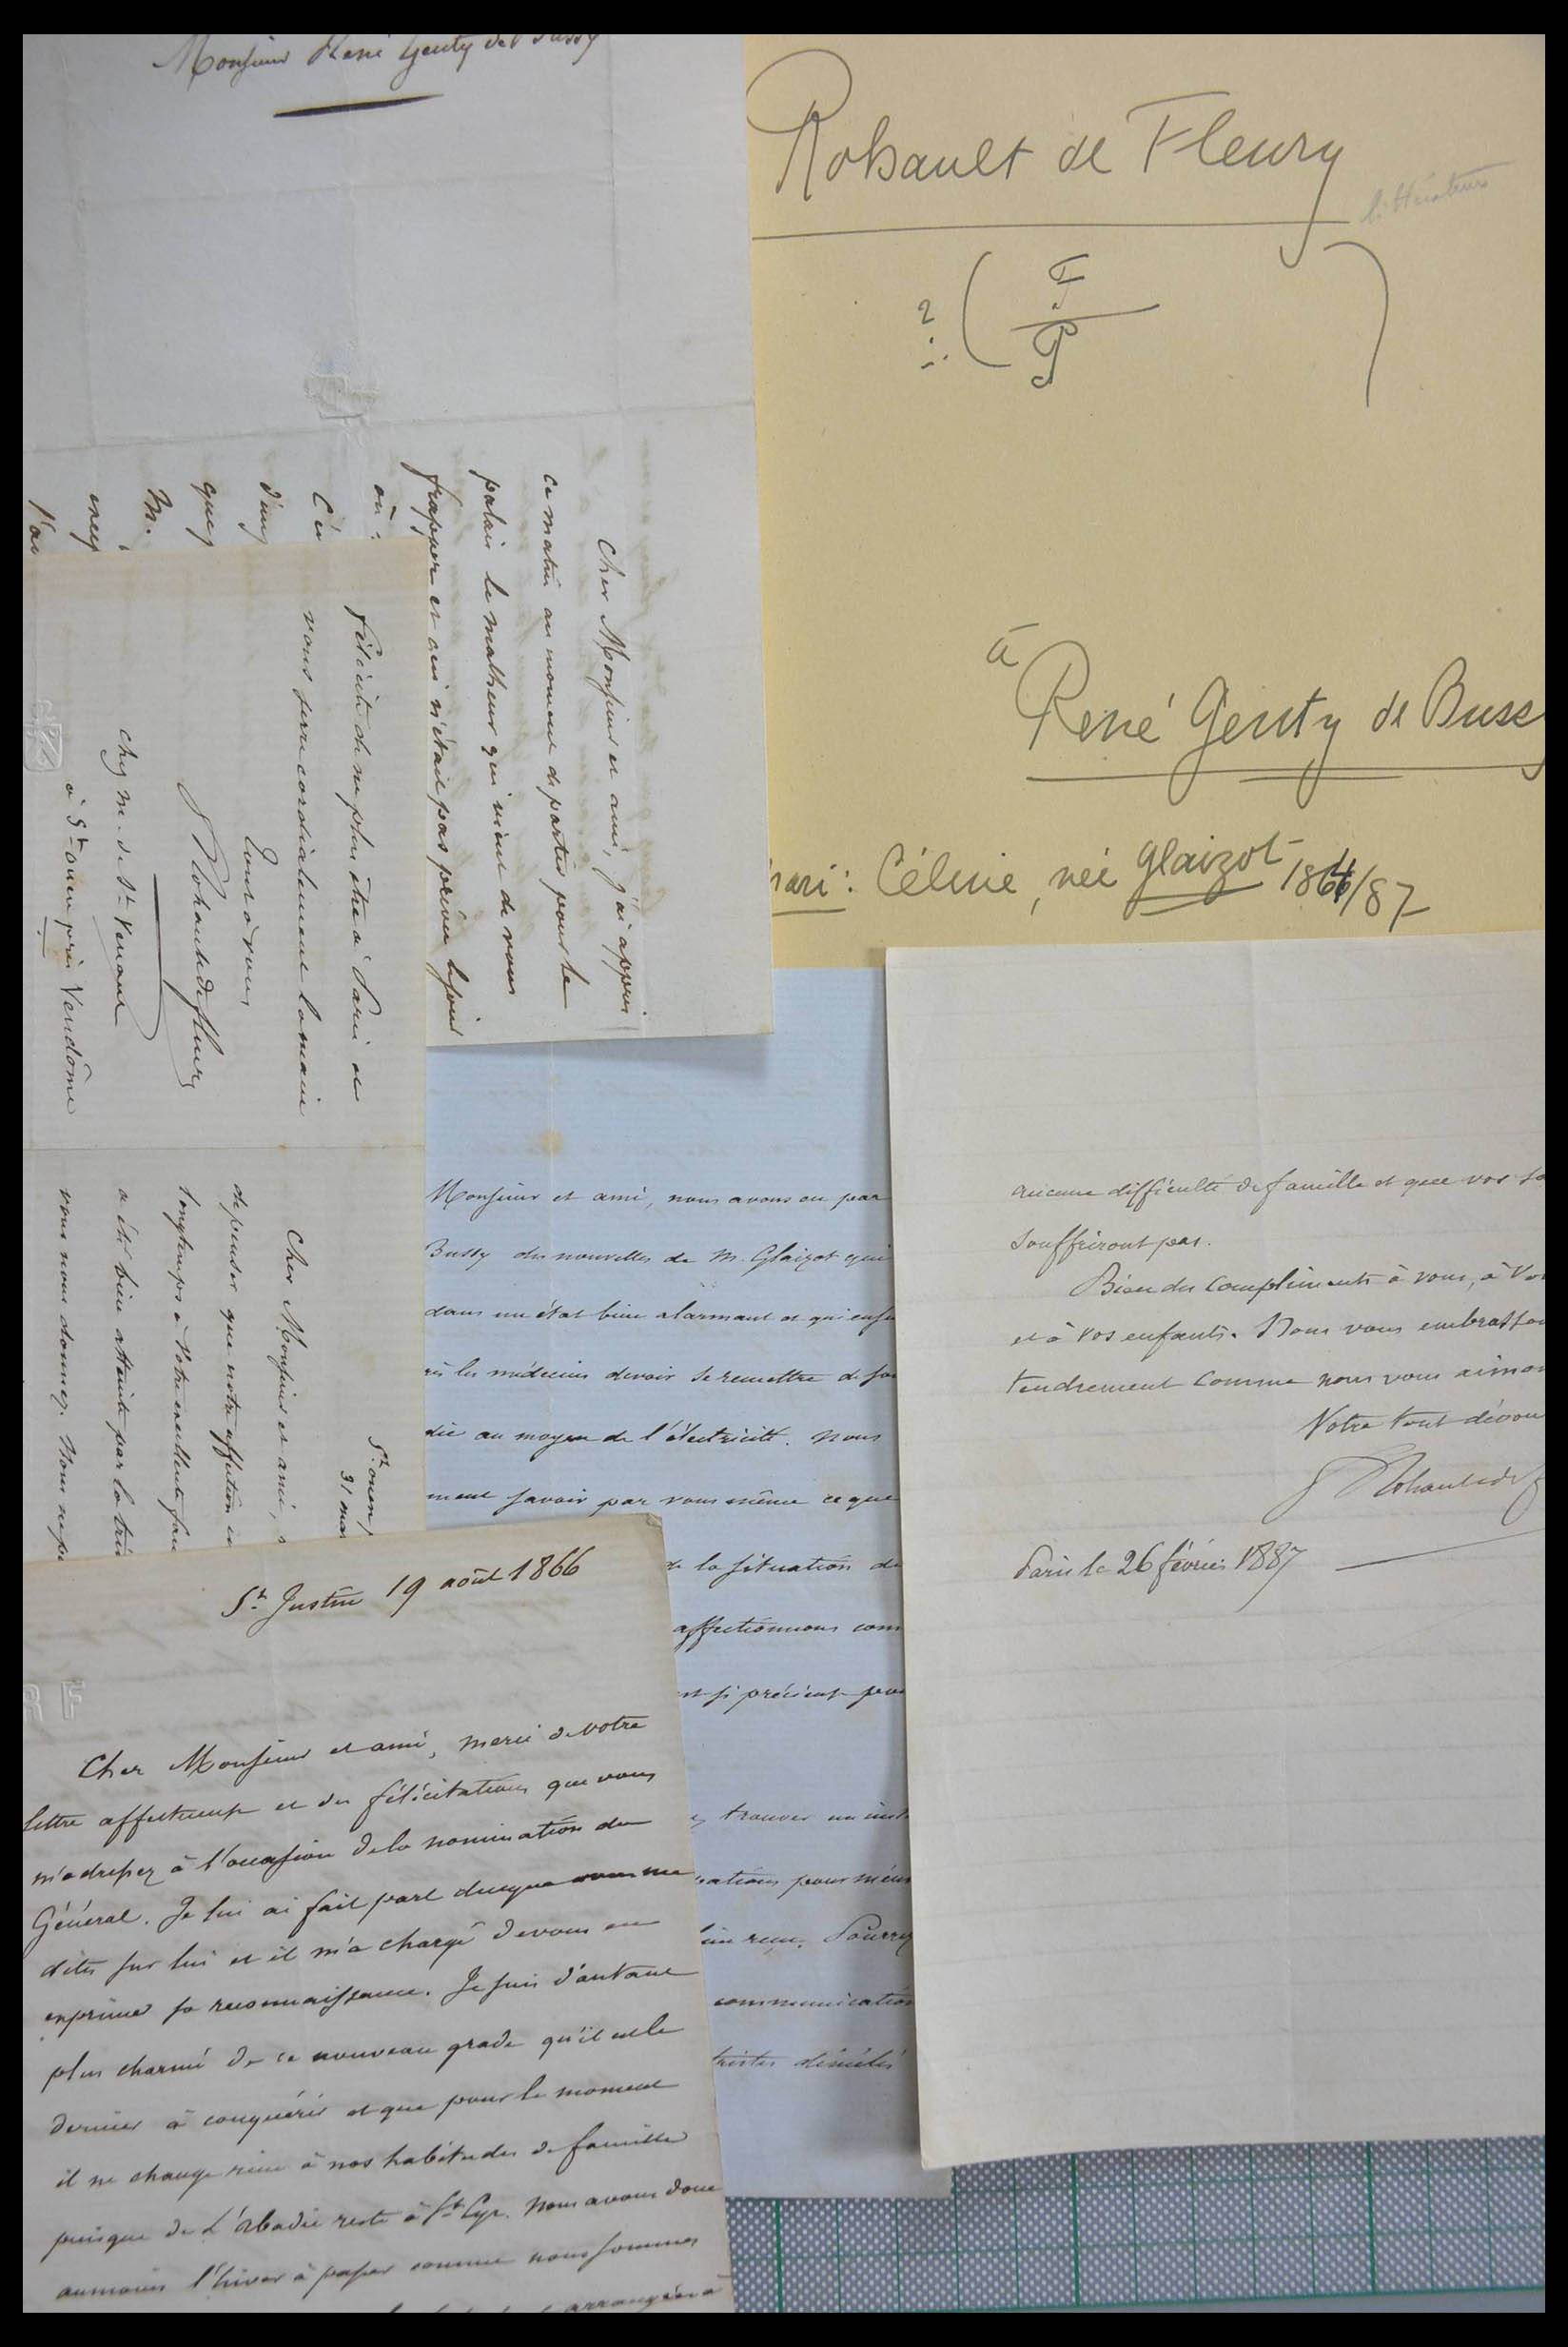 Monsieur René Genty de Bussy
Rohault de Fleury
littérateur
? ( F
G )
à
René Genty de Buss
mari : Céline, née Glaizot 1864/87
Cher Monsieur et ami, j'ai appris
ce matin au moment de partir pour le
palais le malheur qui vient de vous
frapper et qui n'était pas prévu
où
d'un
que
M.
l'ai
félicité de ne plus être à Paris et
vous serre cordialement la main
Tout à vous
Rohault de fleury
chez M. de St Venant
à St ouen près Vendôme
St ouen,
31 mar
Cher Monsieur et ami,
de penser que notre affection
longtemps à votre excellent
a été bien atteinte par la tri
vous nous donnez. Nous ne p
Monsieur et ami, nous avons eu par
Bussy des nouvelles de M. Glaizot qui
dans un état bien alarmant et qui
les médecins devoir se remettre de sa
die au moyen de l'électricité. Nous
ment savoir par vous même ce que
de la situation de
affectionnons com
est si précieux pou
trouver un inst
pour
reçu. Pourrez
communication
tristes démêlés
aucune difficulté de famille et que vos
souffriront pas.
Bien des compliments à vous, à vo
et à vos enfants. Nous vous embrasson
tendrement comme nous vous aimon
Votre tout dévou
Rohault de f
Paris le 26 février 1887
St Justin 19 août 1866
RF
Cher Monsieur et ami, merci de votre
lettre affectueuse et des félicitations que vous
m'adressez à l'occasion de la nomination du
Général. Je lui ai fait part de ce que vous me
dites sur lui et il m'a chargé de vous en
exprimer sa reconnaissance. Je suis d'autant
plus charmé de ce nouveau grade qu'il est le
dernier à conquérir et que pour le moment
il ne change rien à nos habitudes de famille
puisque de L'abadie reste à St Cyr. Nous avons donc
au moins l'hiver à passer comme nous sommes